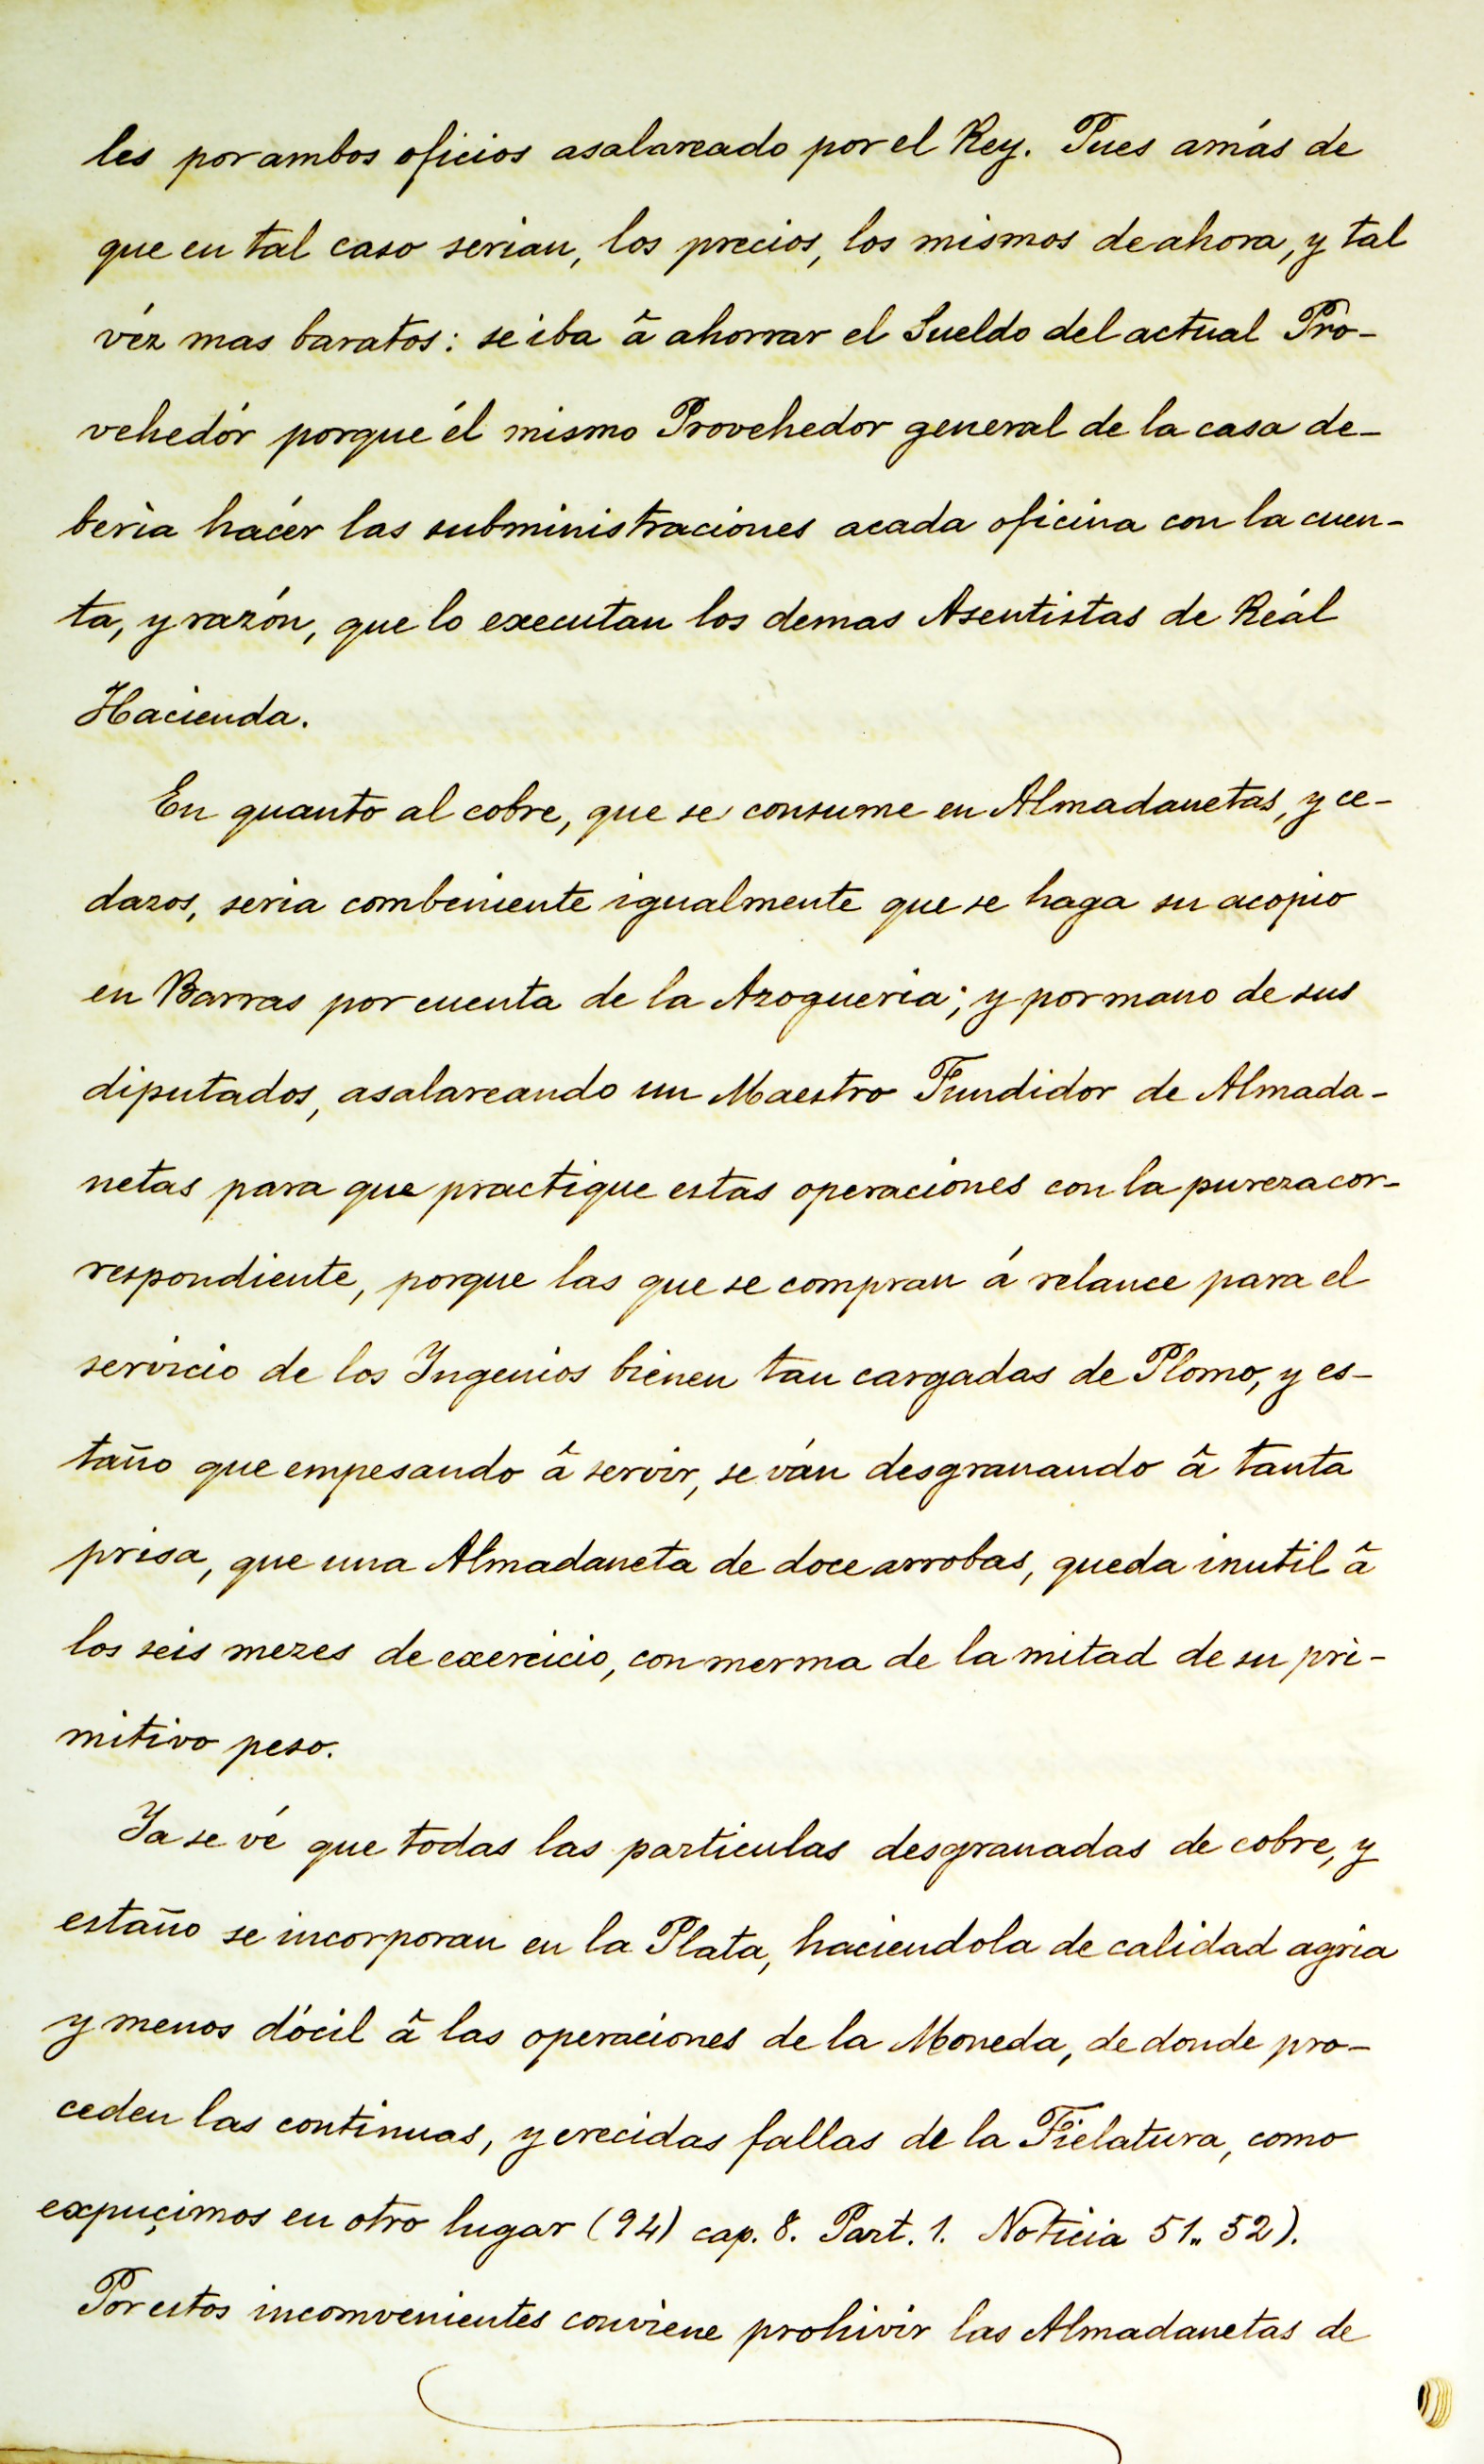 les por ambos oficios asalareado por el Rey. Pues amás de
que en tal caso serian, los precios, los mismos de ahora, y tal
véz mas baratos: se iba â ahorrar el Sueldo del actual Pro-
vehedór porque él mismo Provehedor general de la casa de-
beria hacér las subministraciónes acada oficina con la cuen-
ta, y razón, que lo executan los demas Asentistas de Reál
Hacienda.
En quanto al cobre, que se consume en Almadanetas, y ce-
dazos, seria combeniente igualmente que se haga su acopio
en Barras por cuenta de la Azogueria; y por mano de sus
diputados, asalareando un Maestro Fundidor de Almada-
netas para que practique estas operaciónes con la pureza cor-
respondiente, porque las que se compran á relance para el
servicio de los Ingenios bienen tan cargadas de Plomo, y es-
taño que empesando â servir, se ván desgranando â tanta
prisa, que una Almadaneta de doce arrobas, queda inutil â
los seis mezes de exercicio, con merma de la mitad de su pri-
mitivo peso.
Ya se vé que todas las particulas desgranadas de cobre, y
estaño se incorporan en la Plata, haciendola de calidad agria
y menos dócil â las operaciones de la Moneda, de donde pro-
ceden las continuas, y crecidas fallas de la Fielatura, como
expuçimos en otro lugar (94) cap. 8. Part. 1. Noticia 51.. 52).
Por estos incomvenientes conviene prohivir las Almadanetas de